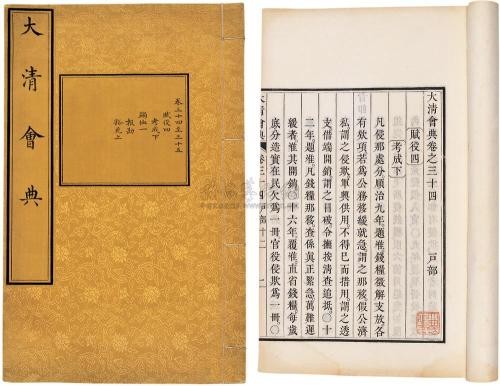 大清會典
卷三十四至三十五
賦役四
考成下
蠲恤一
報勘
大清會典卷之三十四
戶部
賦役四
考成下
凡侵那處分順治九年題准錢糧徵解支放各
有欵項若爲公務移緩就急謂之那移假公濟
私謂之侵欺軍興供用不得已而措用謂之透
支借端開銷謂之冒破令撫按清查追抵〇十
二年題准凡錢糧那移查係眞正緊急萬難遲
緩者准其開銷〇十六年覆准直省錢糧每歲
底分造實在民欠爲一冊官役侵欺爲一冊〇
大清會典
卷三十四
戶部十二
一